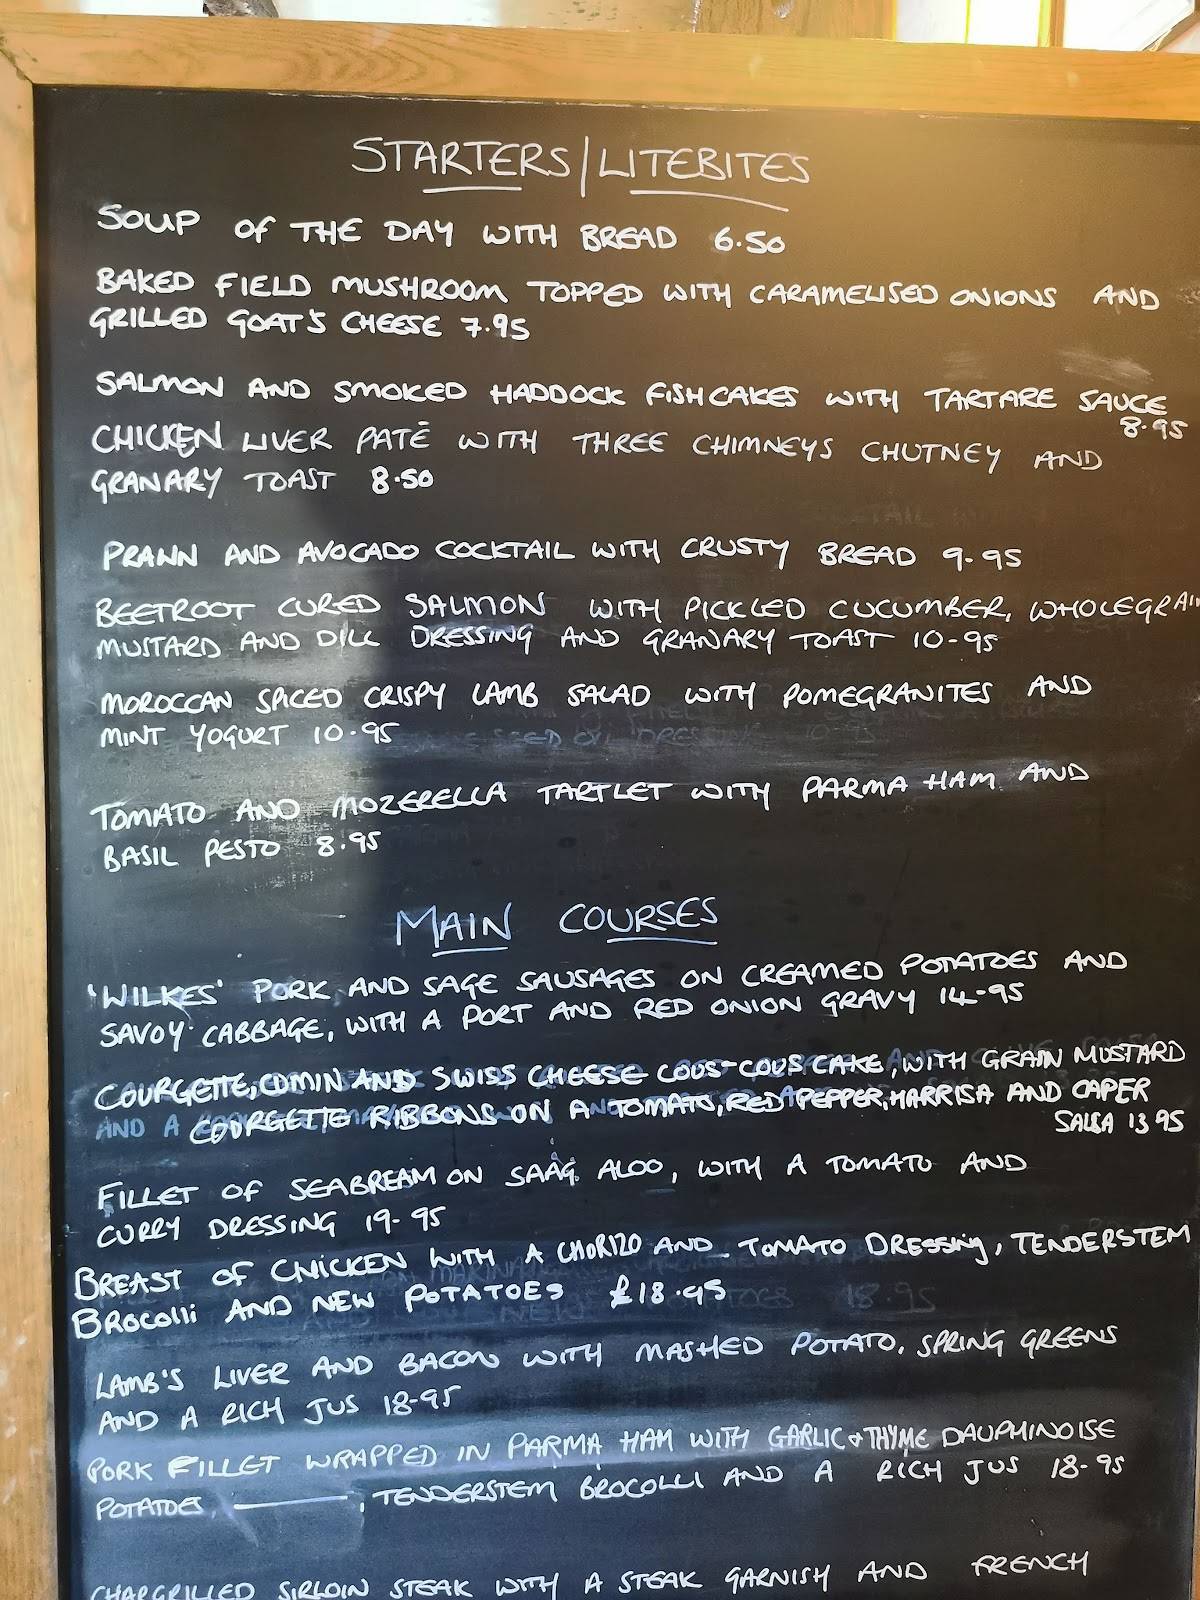 STARTERS/LITEBITES
SOUP OF THE DAY WITH BREAD 6.50
BAKED FIELD MUSHROOM TOPPED WITH CARAMELISED ONIONS AND
GRILLED GOAT'S CHEESE 7.95
SALMON AND SMOKED HADDOCK FISHCAKES WITH TARTARE SAUCE
8.95
CHICKEN LIVER PATE WITH THREE CHIMNEYS CHUTNEY AND
GRANARY TOAST 8.50
PRAWN AND AVOCADO COCKTAIL WITH CRUSTY BREAD 9.95
BEETROOT CURED SALMON WITH PICKLED CUCUMBER, WHOLEGRAIN
MUSTARD AND DILL DRESSING AND GRANARY TOAST 10-95
MOROCCAN SPICED CRISPY LAMB SALAD WITH POMEGRANITES AND
MINT YOGURT 10.95
TOMATO AND MOZERELLA TARTLET WITH PARMA HAM AND
BASIL PESTO 8.95
MAIN COURSES
'WILKES' PORK AND SAGE SAUSAGES ON CREAMED POTATOES AND
SAVOY CABBAGE, WITH A PORT AND RED ONION GRAVY 14-95
COURGETTE, CUMIN AND SWISS CHEESE COUS-COUS CAKE, WITH GRAIN MUSTARD
AND A COURGETTE RIBBONS ON A TOMATO, RED PEPPER, HARRISA AND CAPER
SALSA 13.95
FILLET OF SEABREAM ON SAAG ALOO, WITH A TOMATO AND
CURRY DRESSING 19-95
BREAST OF CHICKEN WITH A CHORIZO AND TOMATO DRESSING, TENDERSTEM
BROCOLLI AND NEW POTATOES £18.95
LAMB'S LIVER AND BACON WITH MASHED POTATO, SPRING GREENS
AND A RICH JUS 18-95
PORK FILLET WRAPPED IN PARMA HAM WITH GARLIC & THYME DAUPHINOISE
POTATOES, , TENDERSTEM BROCOLLI AND A RICH JUS 18-95
CHARGRILLED SIRLOIN STEAK WITH A STEAK GARNISH AND FRENCH